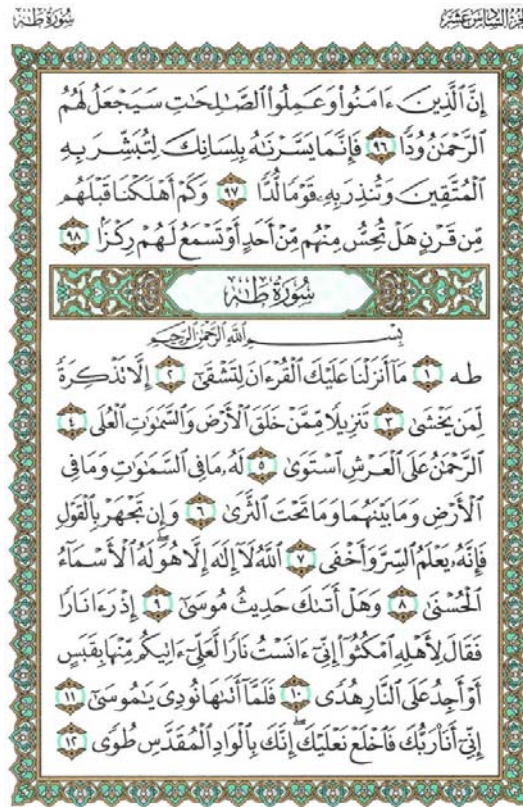 الجزء السادس عشر
سُورَةُ طه
إِنَّ ٱلَّذِينَ ءَامَنُوا۟ وَعَمِلُوا۟ ٱلصَّٰلِحَٰتِ سَيَجْعَلُ لَهُمُ
ٱلرَّحْمَٰنُ وُدًّا ٩٦ فَإِنَّمَا يَسَّرْنَٰهُ بِلِسَانِكَ لِتُبَشِّرَ بِهِ
ٱلْمُتَّقِينَ وَتُنذِرَ بِهِۦ قَوْمًا لُّدًّا ٩٧ وَكَمْ أَهْلَكْنَا قَبْلَهُم
مِّن قَرْنٍ هَلْ تُحِسُّ مِنْهُم مِّنْ أَحَدٍ أَوْ تَسْمَعُ لَهُمْ رِكْزًۢا ٩٨
سُورَةُ طه
بِسْمِ ٱللَّهِ ٱلرَّحْمَٰنِ ٱلرَّحِيمِ
طه ١ مَآ أَنزَلْنَا عَلَيْكَ ٱلْقُرْءَانَ لِتَشْقَىٰٓ ٢ إِلَّا تَذْكِرَةً
لِّمَن يَخْشَىٰ ٣ تَنزِيلًا مِّمَّنْ خَلَقَ ٱلْأَرْضَ وَٱلسَّمَٰوَٰتِ ٱلْعُلَى ٤
ٱلرَّحْمَٰنُ عَلَى ٱلْعَرْشِ ٱسْتَوَىٰ ٥ لَهُۥ مَا فِى ٱلسَّمَٰوَٰتِ وَمَا فِى
ٱلْأَرْضِ وَمَا بَيْنَهُمَا وَمَا تَحْتَ ٱلثَّرَىٰ ٦ وَإِن تَجْهَرْ بِٱلْقَوْلِ
فَإِنَّهُۥ يَعْلَمُ ٱلسِّرَّ وَأَخْفَى ٧ ٱللَّهُ لَآ إِلَٰهَ إِلَّا هُوَۖ لَهُ ٱلْأَسْمَآءُ
ٱلْحُسْنَىٰ ٨ وَهَلْ أَتَىٰكَ حَدِيثُ مُوسَىٰٓ ٩ إِذْ رَءَا نَارًا
فَقَالَ لِأَهْلِهِ ٱمْكُثُوٓا۟ إِنِّىٓ ءَانَسْتُ نَارًا لَّعَلِّىٓ ءَاتِيكُم مِّنْهَا بِقَبَسٍ
أَوْ أَجِدُ عَلَى ٱلنَّارِ هُدًى ١٠ فَلَمَّآ أَتَىٰهَا نُودِىَ يَٰمُوسَىٰٓ ١١
إِنِّىٓ أَنَا۠ رَبُّكَ فَٱخْلَعْ نَعْلَيْكَۖ إِنَّكَ بِٱلْوَادِ ٱلْمُقَدَّسِ طُوًى ١٢